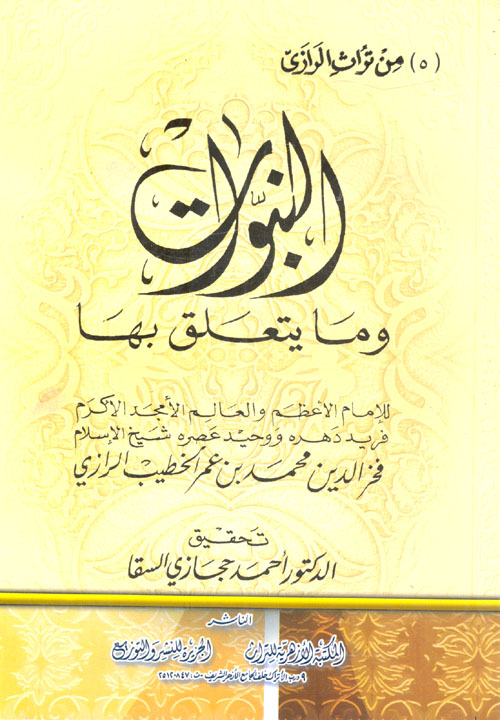 (٥) من تراث الرازى
النبوّات
وما يتعلق بها
للإمام الأعظم والعالم الأمجد الأكرم
فريد دهره ووحيد عصره شيخ الإسلام
فخر الدين محمد بن عمر الخطيب الرازي
تحقيق
الدكتور أحمد حجازي السقا
الناشر
المكتبة الأزهرية للتراث الجزيرة للنشر والتوزيع
٩ درب الأتراك خلف الجامع الأزهر الشريف ت: ٢٥١٢٠٨٤٧